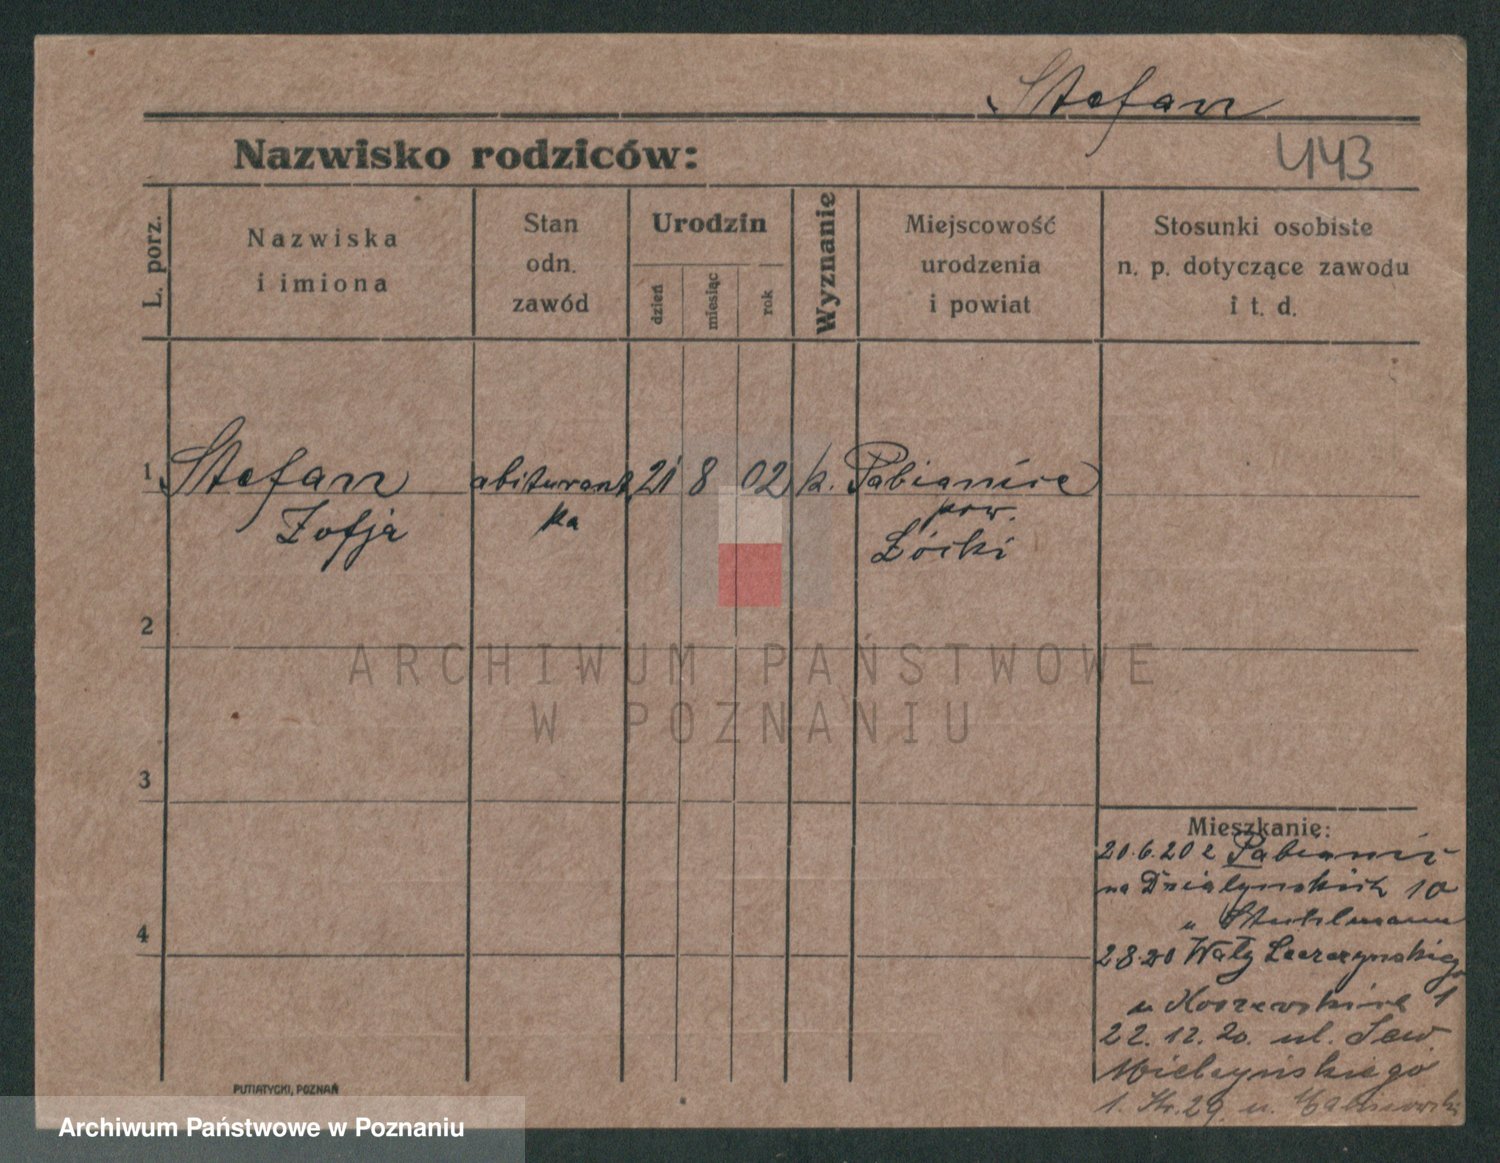 Stefan
443
Nazwisko rodziców:
L. porz.
Nazwiska
i imiona
Stan
odn.
zawód
Urodzin
dzień
miesiąc
rok
Wyznanie
Miejscowość
urodzenia
i powiat
Stosunki osobiste
n. p. dotyczące zawodu
i t. d.
1 Stefan abiturant 21 8 02 k. Pabianice
Zofja ka pow.
Łódzki
2
3
4
ARCHIWUM PAŃSTWOWE
W POZNANIU
Mieszkanie:
20.6.20 z Pabianic
na Działyńskich 10
u Stuhlmann
2 8.20 Wały Leszczyńskiego
u 1
22.12.20. ul. Sew.
Mielżyńskiego
29 u.
PUTIATYCKI, POZNAŃ
Archiwum Państwowe w Poznaniu